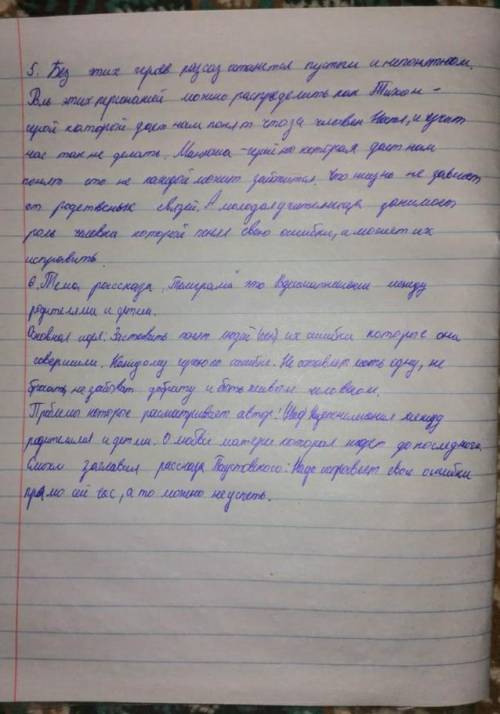 5. Без этих героев рассаз останется пустым и непонятном.
Роль этих персонажей можно распределить как Тихон -
герой каторой дает нам понят что за человек Настя, и учит
нас так не делать. Манюша - герой но которая дает нам
понят что не каждой может
от родственых связей. А молодая учительница занимает
роль человка которой понел свою ошибки, и может их
исправить.
6. Тема рассказа "Телеграма" это Взаимапонимании между
родителями и детми.
Основная идея: Заставить понят людей их ошибки которое они
совершили. Каждому нужного ошибке. Не оставлят одну, не
бросать, не забоват доброту и быть живым человеком.
Проблемо которое расматривает автор: между
родителями и детми. О любви матери которая ждет до последнего.
Смысл заглавия рассказа Паустовского: Надо исправлет свои ошибки
прямо сей час, а то можно не успеть.